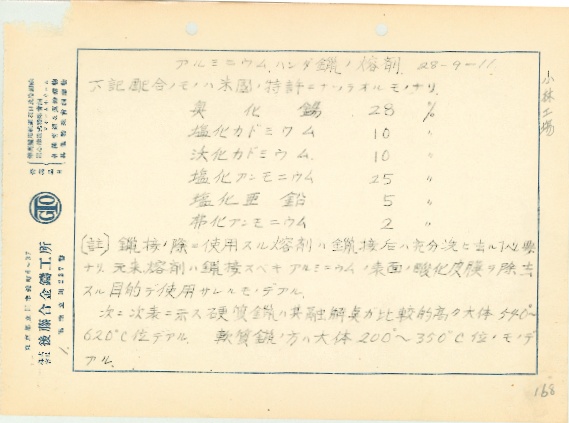 アルミニウム ハンダ鑞ノ熔剤 28-9-11
下記配合ノモノハ米国ノ特許ニナッテオルモノナリ.
臭化錫 28 %
塩化カドミウム 10 〃
沃化カドミウム. 10 〃
塩化アンモニウム 25 〃
塩化亜鉛 5 〃
弗化アンモニウム 2 〃
[註] 鑞接ノ際ニ使用スル熔剤ハ鑞接后ハ充分
ナリ. 元来熔剤ハ鑞接スベキアルミニウムノ表面ノ酸化皮膜ヲ除去
スル目的デ使用サレルモノデアル.
次ニ次表ニ示ス硬質鑞ハ其融解点ガ比較的高ク大体540~
620°C位デアル. 軟質鑞ノ方ハ大体200°~350°C位ノモノデ
アル.
小林工場
GTO
後藤合金鋳工所
168